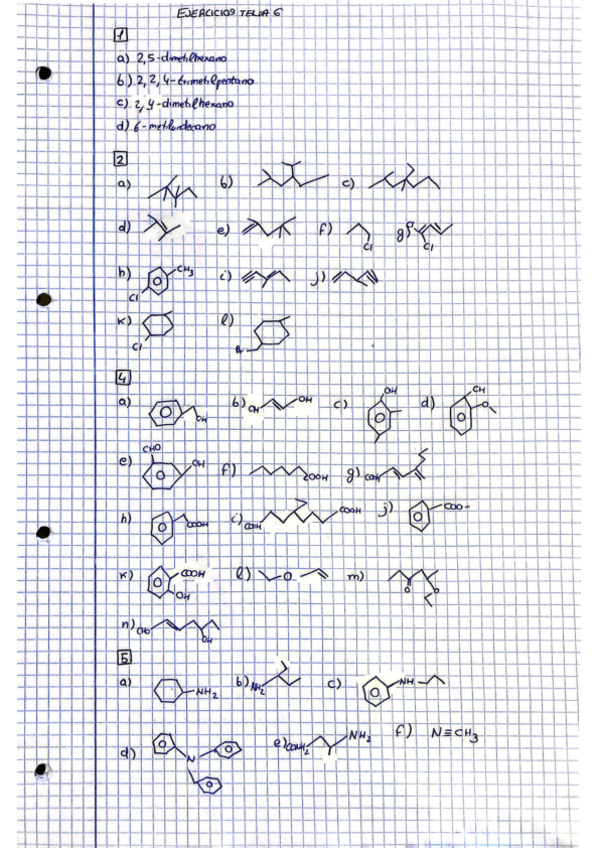 EJERCICIOS TEMA 6
1
a) 2,5-dimetilhexano
b) 2,2,4-trimetilpentano
c) 2,4-dimetilhexano
d) 6-metilundecano
2
a) b) c)
d) e) f) Cl g) Cl
h) CH3 Cl i) j)
k) Cl l)
4
a) OH b) OH OH c) OH d) OH O
e) CHO OH f) COOH g) COOH
h) COOH i) COOH COOH j) COO-
k) COOH OH l) O m) O O
n) CHO OH
5
a) NH2 b) NH2 c) NH
d) N e) CONH2 NH2 f) N≡CH3